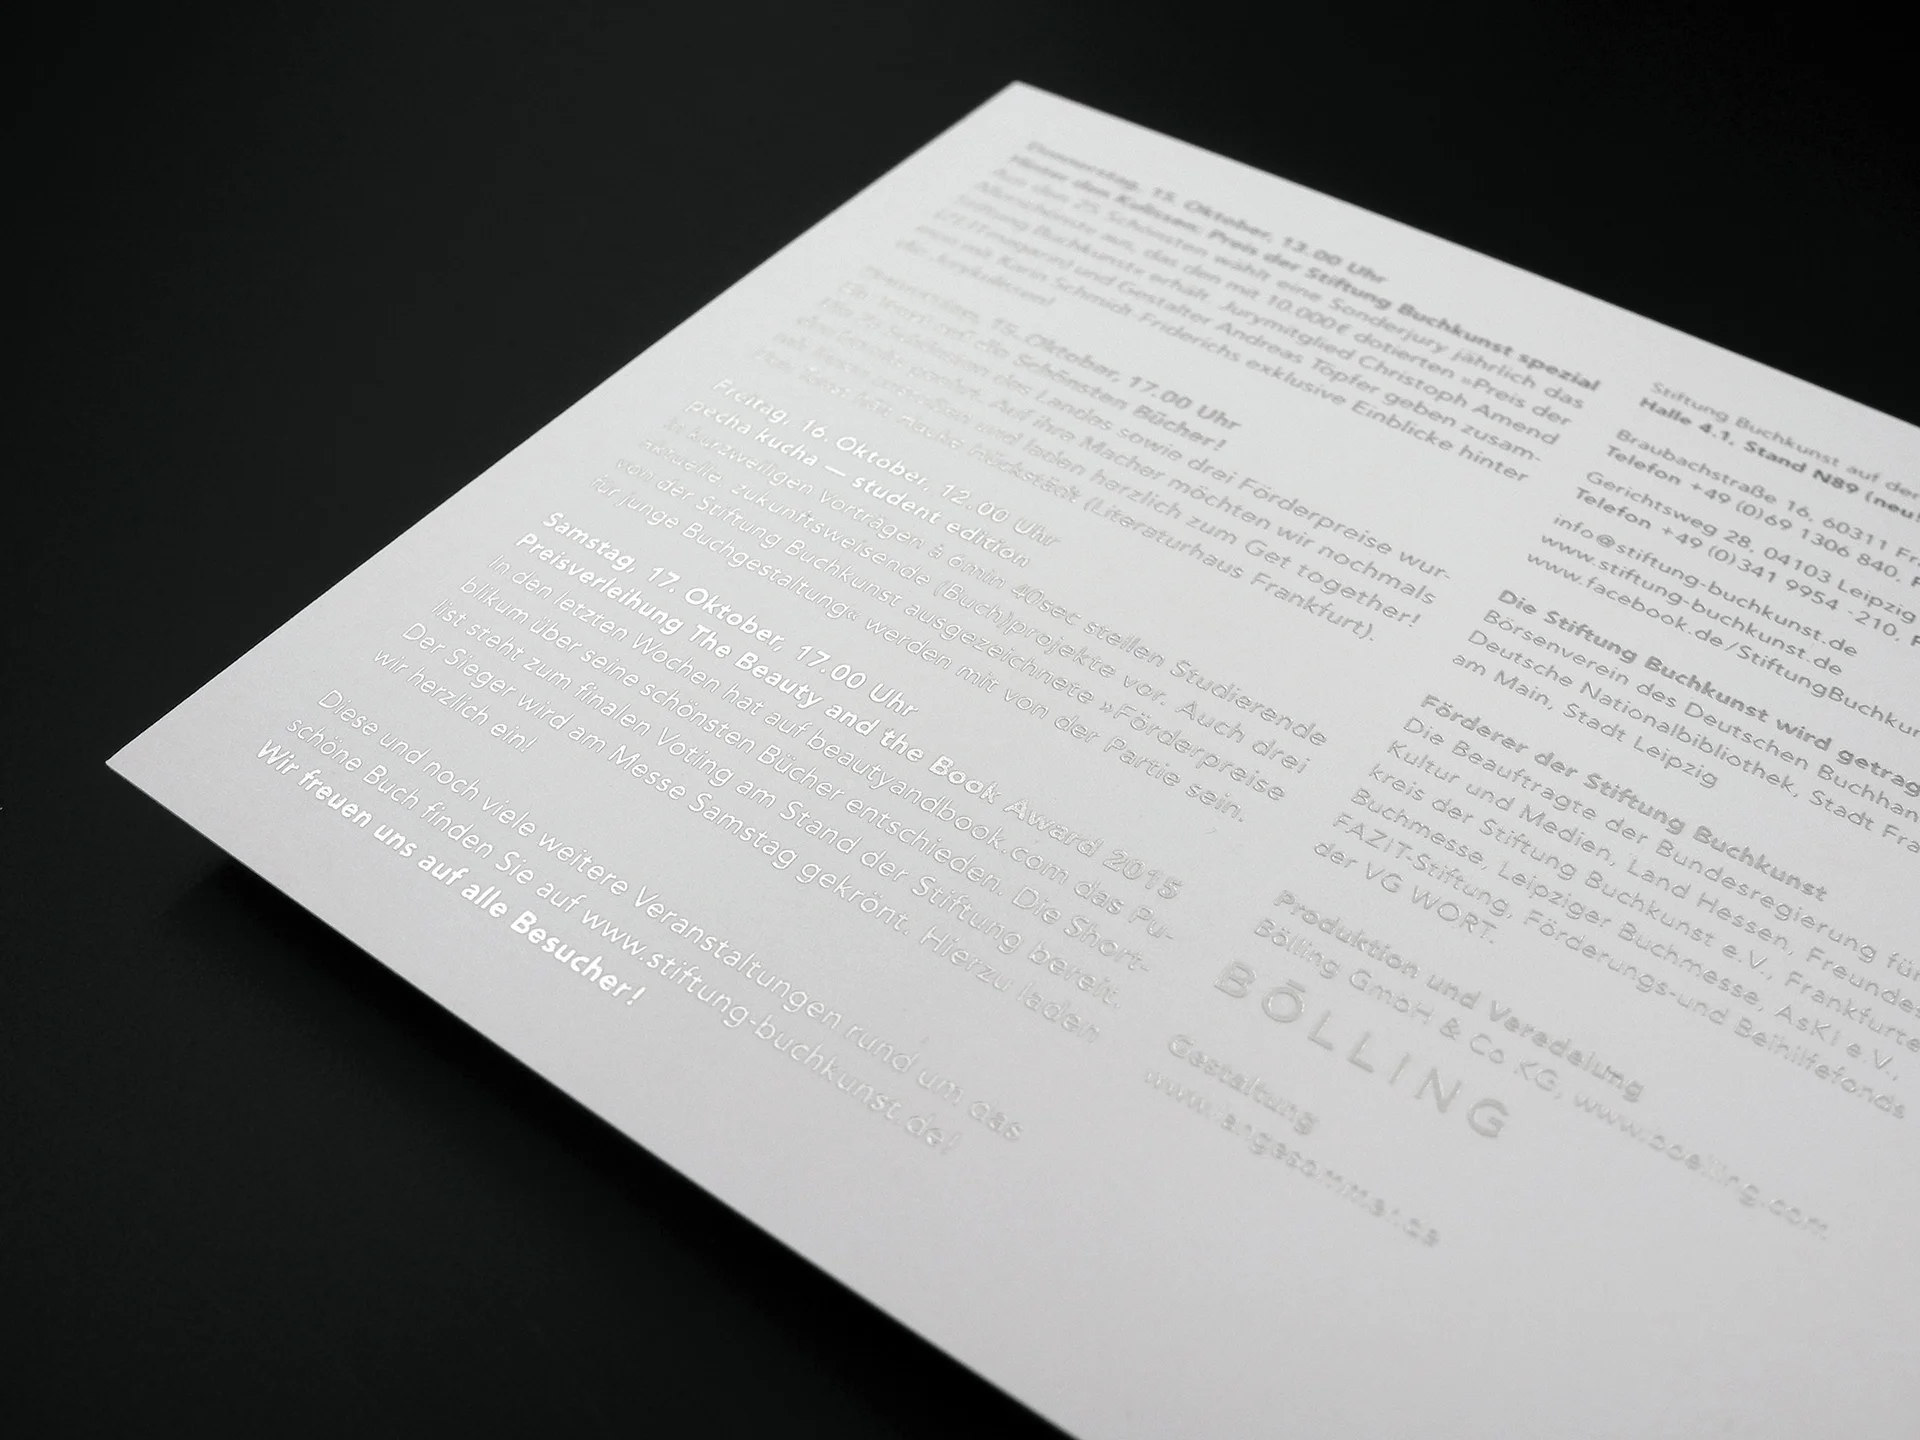 Donnerstag, 15. Oktober, 13.00 Uhr
Hinter den Kulissen: Preis der Stiftung Buchkunst spezial
Aus den 25 Schönsten wählt eine Sonderjury jährlich das
Allerschönste aus, das den mit 10.000 € dotierten »Preis der
Stiftung Buchkunst« erhält. Jurymitglied Christoph Amend
(ZEITmagazin) und Gestalter Andreas Töpfer geben zusam-
men mit Karin Schmidt-Friderichs exklusive Einblicke hinter
die Jurykulissen!
Donnerstag, 15. Oktober, 17.00 Uhr
Ein Toast auf die Schönsten Bücher!
Die 25 Schönsten des Landes sowie drei Förderpreise wur-
den prämiert. Auf ihre Macher möchten wir nochmals
und laden herzlich zum Get together!
Hückstädt (Literaturhaus Frankfurt).
Freitag, 16. Oktober, 12.00 Uhr
pecha kucha — student edition
In kurzweiligen Vorträgen à 6min 40sec stellen Studierende
aktuelle, zukunftsweisende (Buch)projekte vor. Auch drei
von der Stiftung Buchkunst ausgezeichnete »Förderpreise
für junge Buchgestaltung« werden mit von der Partie sein.
Samstag, 17. Oktober, 17.00 Uhr
Preisverleihung The Beauty and the Book Award 2015
In den letzten Wochen hat auf beautyandbook.com das Pu-
blikum über seine schönsten Bücher entschieden. Die Short-
list steht zum finalen Voting am Stand der Stiftung bereit.
Der Sieger wird am Messe Samstag gekrönt. Hierzu laden
wir herzlich ein!
Diese und noch viele weitere Veranstaltungen rund um das
schöne Buch finden Sie auf www.stiftung-buchkunst.de!
Wir freuen uns auf alle Besucher!
Stiftung Buchkunst auf der
Halle 4.1, Stand N89 (neu!
Braubachstraße 16, 60311 Fr
Telefon +49 (0)69 1306 840, F
Gerichtsweg 28, 04103 Leipzig
Telefon +49 (0)341 9954 -210, F
info@stiftung-buchkunst.de
www.stiftung-buchkunst.de
www.facebook.de/StiftungBuchkun
Die Stiftung Buchkunst wird getrag
Börsenverein des Deutschen Buchhan
Deutsche Nationalbibliothek, Stadt Fra
am Main, Stadt Leipzig
Förderer der Stiftung Buchkunst
Die Beauftragte der Bundesregierung für
Kultur und Medien, Land Hessen, Freundes
kreis der Stiftung Buchkunst e.V., Frankfurte
Buchmesse, Leipziger Buchmesse, AsKI e.V.,
FAZIT-Stiftung, Förderungs-und Beihilfefonds
der VG WORT.
Produktion und Veredelung
Bölling GmbH & Co KG, www.boelling.com
BŌLLING
Gestaltung